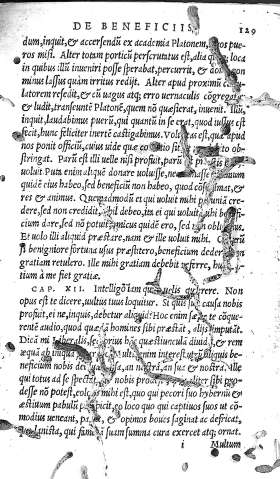 DE BENEFICIIS. 129
dum, inquit, & accersendū ex academia Platonem, pue
ros misi. Alter totam porticū perscrutatus est, alia loca
in quibus illū inveniri posse sperabat, percurrit, & domū non
minus lassus quàm irritus redijt. Alter apud proximū
latorem resedit, & cū vagus atq; erro vernaculis cōgregat
& ludit, transeuntē Platonē, quem nō quæsierat, invenit. Illū,
inquit, laudabimus puerū, qui quantū in se erat, quod iussus est
fecit, hunc feliciter inertē castigabimus. est, quæ apud
nos ponit officiū, cuius vide quæ me
stringat. Parū est illi velle nisi profuit, parū est
voluit. Puta enim aliquē donare voluisse, nec
quidē eius habeo, sed beneficiū non habeo, quod
res & animus. Quemadmodū ei qui voluit mihi
sed non credidit, nihil debeo, ita ei qui voluit
cium dare, sed nō potuit, amicus quidē ero, sed non
Et volo illi aliquid præstare, nam & ille voluit mihi.
si benigniore fortuna usus præstitero, beneficium dedero,
gratiam retulero. Ille mihi gratiam debebit referre,
tium à me fiet gratiæ.
CAP. XII. Intelligo iam quid velis quærere. Non
opus est te dicere, vultus tuus loquitur. Si quis sua causa nobis
profuit, ei ne, inquis, debetur aliquid? Hoc enim sæpe te cōque-
rentē audio, quod quædā homines sibi præstāt, alijs imputāt.
Dicā mi Liberalis, sed prius hanc quæstiunculā diuidā, & rem
æquā ab iniqua Multum enim interest utrū aliquis be-
neficium nobis det sua causa, an nostra, an sua & nostra. Ille
qui totus ad se spectat, & nobis prodest, quia aliter sibi pro-
desse nō potest, eo loco mihi est, quo qui pecori suo hybernū &
æstivum pabulū prospicit, eo loco quo qui captiuos suos ut cō-
modius veneant, & opimos boues saginat ac defricat,
Lanista, qui familiā suam summa cura exercet atq; ornat.
i Multum